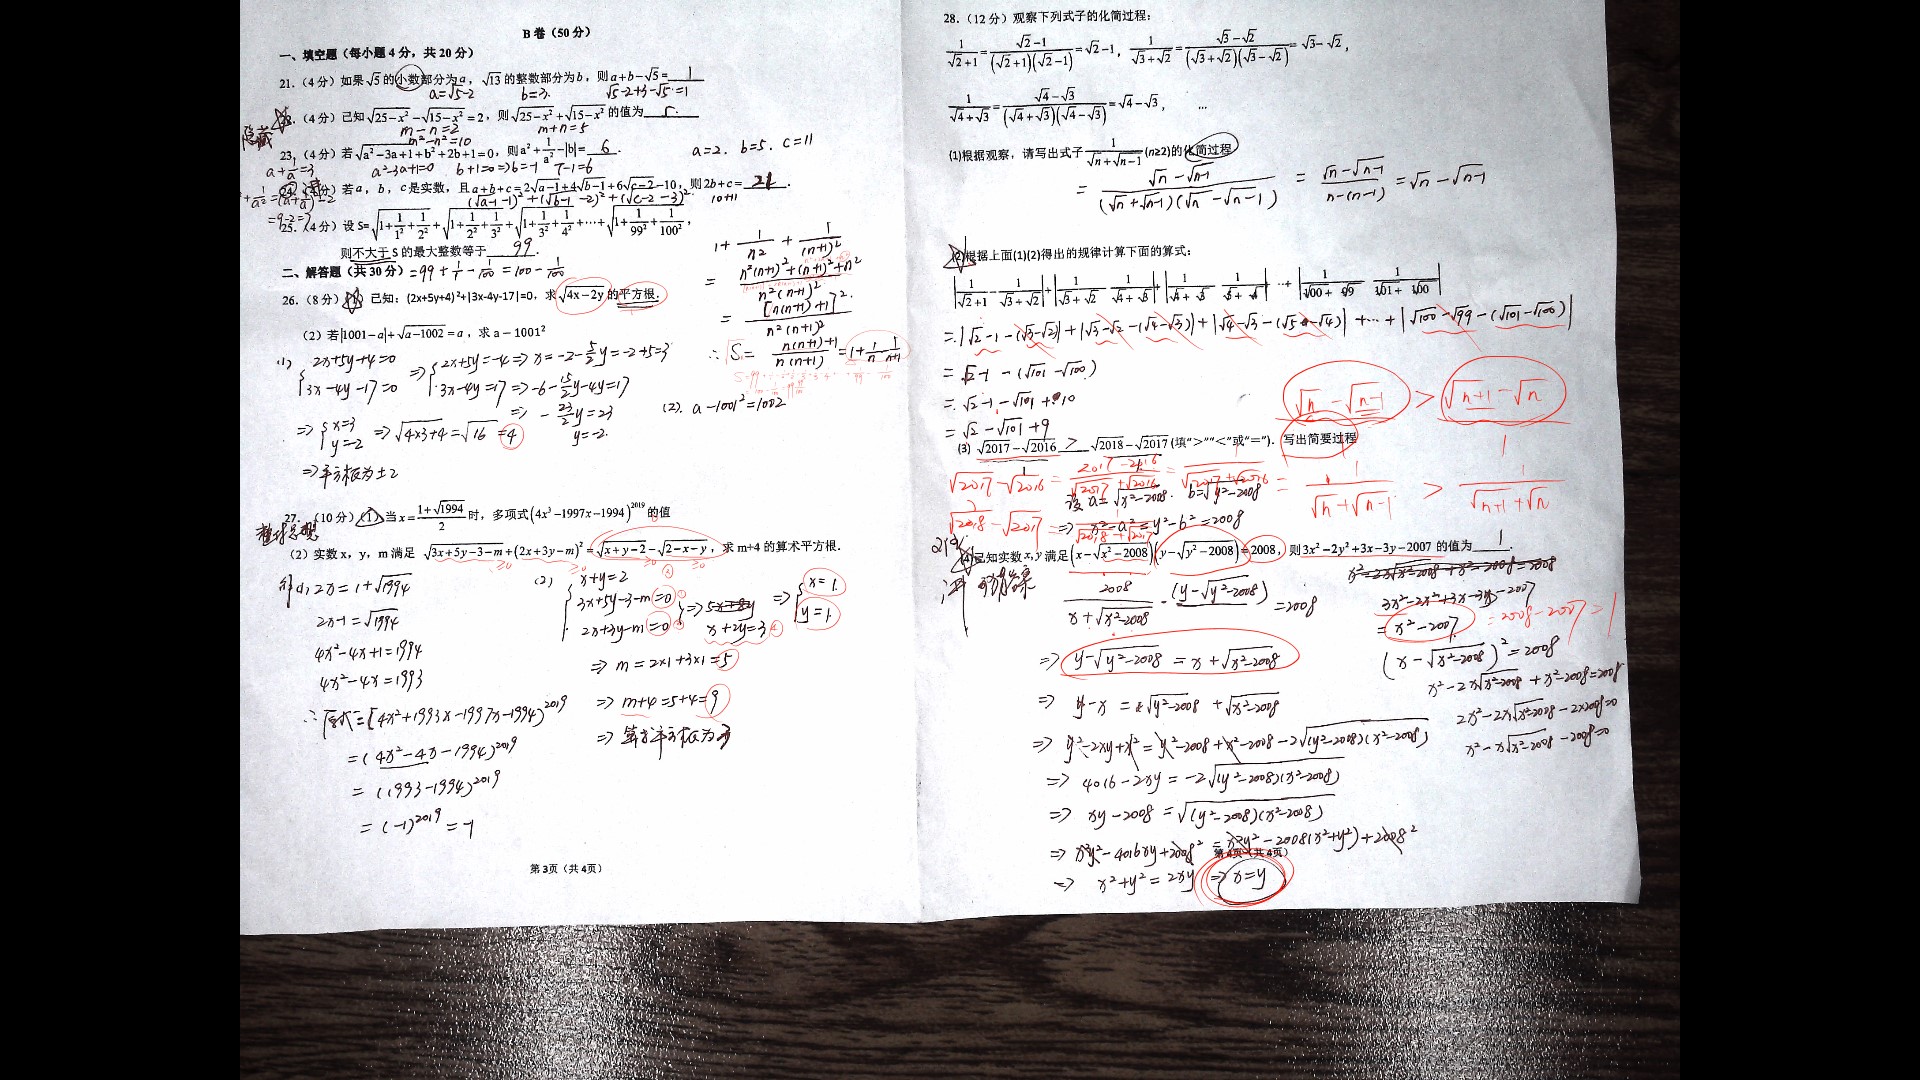 B卷（50分）
一、填空题（每小题4分，共20分）
21.（4分）如果√5的小数部分为a，√13的整数部分为b，则a+b−√5=1
a=√5-2 b=3. √5-2+3-√5=1
（4分）已知√(25−x²)−√(15−x²)=2，则√(25−x²)+√(15−x²)的值为5.
m-n=2 m+n=5
m²-n²=10
隐藏
23.（4分）若√(a²−3a+1)+b²+2b+1=0，则a²+1/a²−|b|=6.
a+1/a=3 a²-3a+1=0 b+1=0=>b=-1 7-1=6
a=2. b=5. c=11
（4分）若a，b，c是实数，且a+b+c=2√(a−1)+4√(b−1)+6√(c−2)−10，则2b+c=21.
(√(a-1)-1)²+(√(b-1)-2)²+(√(c-2)-3)² 10+11
=9-2=7
25.（4分）设S=√(1+1/1²+1/2²)+√(1+1/2²+1/3²)+√(1+1/3²+1/4²)+…+√(1+1/99²+1/100²)，
则不大于S的最大整数等于99.
=99+1/1-1/100=100-1/100
1+1/n²+1/(n+1)²
=(n²(n+1)²+(n+1)²+n²)/(n²(n+1)²)
=[n(n+1)+1]²/(n²(n+1)²)
∴√S=(n(n+1)+1)/(n(n+1))=1+1/n-1/(n+1)
二、解答题（共30分）
26.（8分）（1）已知：(2x+5y+4)²+|3x-4y-17|=0，求√(4x−2y)的平方根.
（2）若|1001−a|+√(a−1002)=a，求a−1001²
(1) {2x+5y+4=0 3x-4y-17=0 => {2x+5y=-4=>x=-2-5/2y=-2+5=3
3x-4y=17=>-6-15/2y-4y=17
=>-23/2y=23
y=-2.
=>{x=3 y=-2 =>√(4×3+4)=√16=4
=>平方根为±2
(2). a-1001²=1002
27.（10分）（1）当x=(1+√1994)/2时，多项式(4x³−1997x−1994)²⁰¹⁹的值
整体思想
（2）实数x，y，m满足√(3x+5y−3−m)+(2x+3y−m)²=√(x+y−2)−√(2−x−y)，求m+4的算术平方根.
解(1)2x=1+√1994
2x-1=√1994
4x²-4x+1=1994
4x²-4x=1993
∴原式=[4x²+1993x-1997x-1994]²⁰¹⁹
=(4x²-4x-1994)²⁰¹⁹
=(1993-1994)²⁰¹⁹
=(-1)²⁰¹⁹=-1
(2) {x+y=2
3x+5y-3-m=0
2x+3y-m=0
=>x+2y=3 => {x=1. y=1.
=>m=2×1+3×1=5
=>m+4=5+4=9
=>算术平方根为3
第3页（共4页）
28.（12分）观察下列式子的化简过程：
1/(√2+1)=(√2−1)/((√2+1)(√2−1))=√2−1，1/(√3+√2)=(√3−√2)/((√3+√2)(√3−√2))=√3−√2，
1/(√4+√3)=(√4−√3)/((√4+√3)(√4−√3))=√4−√3，…
(1)根据观察，请写出式子1/(√n+√(n−1))(n≥2)的化简过程
=(√n-√(n-1))/((√n+√(n-1))(√n-√(n-1)))=(√n-√(n-1))/(n-(n-1))=√n-√(n-1)
(2)根据上面(1)(2)得出的规律计算下面的算式：
=|√2-1-(√3-√2)|+|√3-√2-(√4-√3)|+|√4-√3-(√5-√4)|+…+|√100-√99-(√101-√100)|
=√2-1-(√101-√100)
=√2-1-√101+10
=√2-√101+9
√n-√(n-1)>√(n+1)-√n
(3) √2017−√2016 > √2018−√2017(填“>”“<”或“=”). 写出简要过程
1/(√n+√(n-1))>1/(√(n+1)+√n)
设a=√(x²-2008). b=√(y²-2008)
=>x²-a²=y²-b²=2008
已知实数x,y满足(x−√(x²−2008))(y−√(y²−2008))=2008，则3x²−2y²+3x−3y−2007的值为1.
2008/(x+√(x²-2008))·(y-√(y²-2008))=2008
3x²-2x²+3x-3x-2007
=x²-2007 =2008-2007=1
=>y-√(y²-2008)=x+√(x²-2008)
(x-√(x²-2008))²=2008
x²-2x√(x²-2008)+x²-2008=2008
=>y-x=√(y²-2008)+√(x²-2008)
2x²-2x√(x²-2008)-2×2008=0
=>y²-2xy+x²=y²-2008+x²-2008-2√((y²-2008)(x²-2008))
x²-x√(x²-2008)-2008=0
=>4016-2xy=-2√((y²-2008)(x²-2008))
=>xy-2008=√((y²-2008)(x²-2008))
=>x²y²-4016xy+2008²=x²y²-2008(x²+y²)+2008²
第4页（共4页）
=>x²+y²=2xy=>x=y